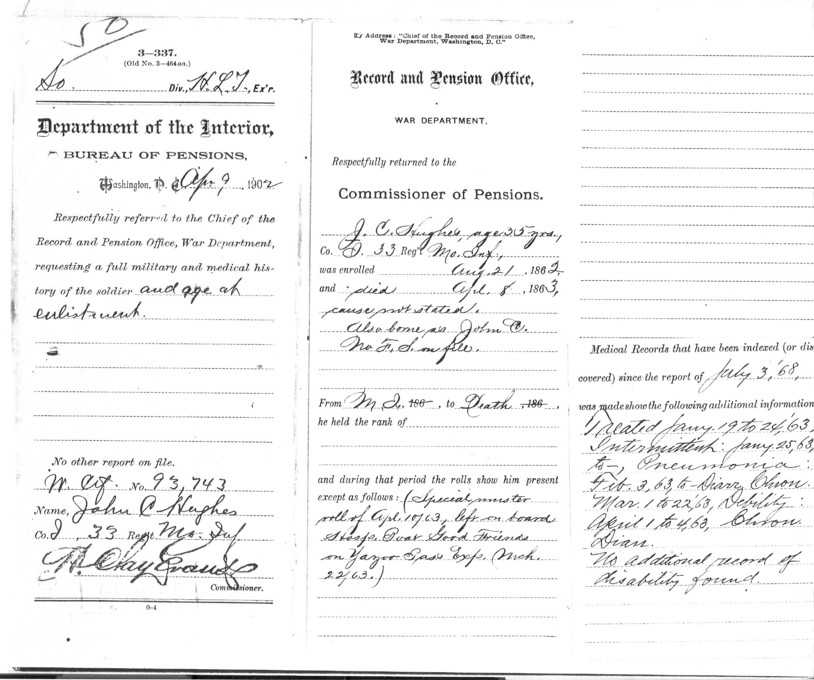 50
3—337.
(Old No. 3—464aa.)
So. Div., H.L.T., Ex'r.
Department of the Interior,
BUREAU OF PENSIONS,
Washington, D. C., Apr 9, 1902
Respectfully referred to the Chief of the
Record and Pension Office, War Department,
requesting a full military and medical his-
tory of the soldier and age at
enlistment.
No other report on file.
W. Ct. No. 93,743
Name, John C Hughes
Co. I, 33 Reg't Mo. Inf.
H. Clay Evans
Commissioner.
0-4
Address: "Chief of the Record and Pension Office,
War Department, Washington, D. C."
Record and Pension Office,
WAR DEPARTMENT.
Respectfully returned to the
Commissioner of Pensions.
J. C. Hughes, age 35 yrs.,
Co. I, 33 Reg't Mo. Inf.,
was enrolled Aug. 21, 1862
and died Apl. 8, 1863,
cause not stated.
Also borne as John C.
No F. S. on file.
From M. I. 186 , to Death 186 ,
he held the rank of
and during that period the rolls show him present
except as follows: (Special muster
roll of Apl. 10/63, left on board
Hosp. Boat Good Friends
on Yazoo Pass Exp. Mch.
22/63.)
Medical Records that have been indexed (or dis
covered) since the report of July 3, '68,
was made show the following additional information
Treated Jany. 19 to 24, 63,
Intermittent: Jany 25, 63,
to —, Pneumonia:
Feb. 3, 63, to – Diarr. Chron.
Mar. 1 to 22, 63, Debility:
April 1 to 4, 63, Chron.
Diarr.
No additional record of
disability found.